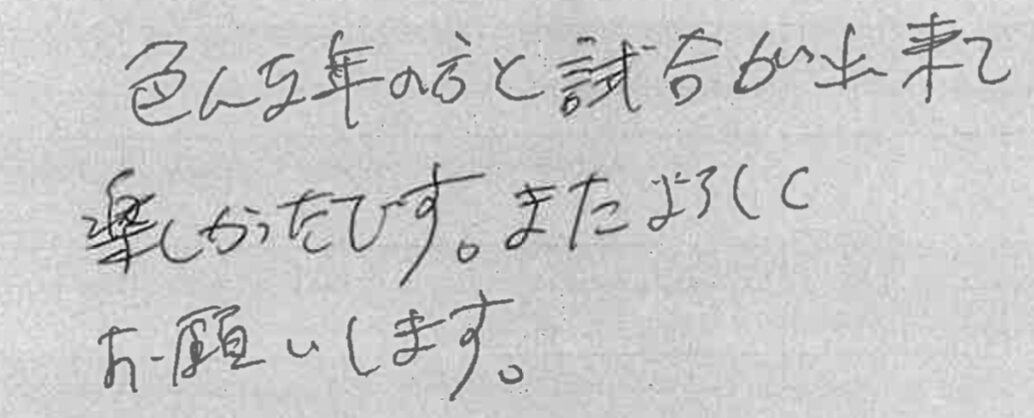 色んな年の方と試合が出来て
楽しかったです。またよろしく
お願いします。